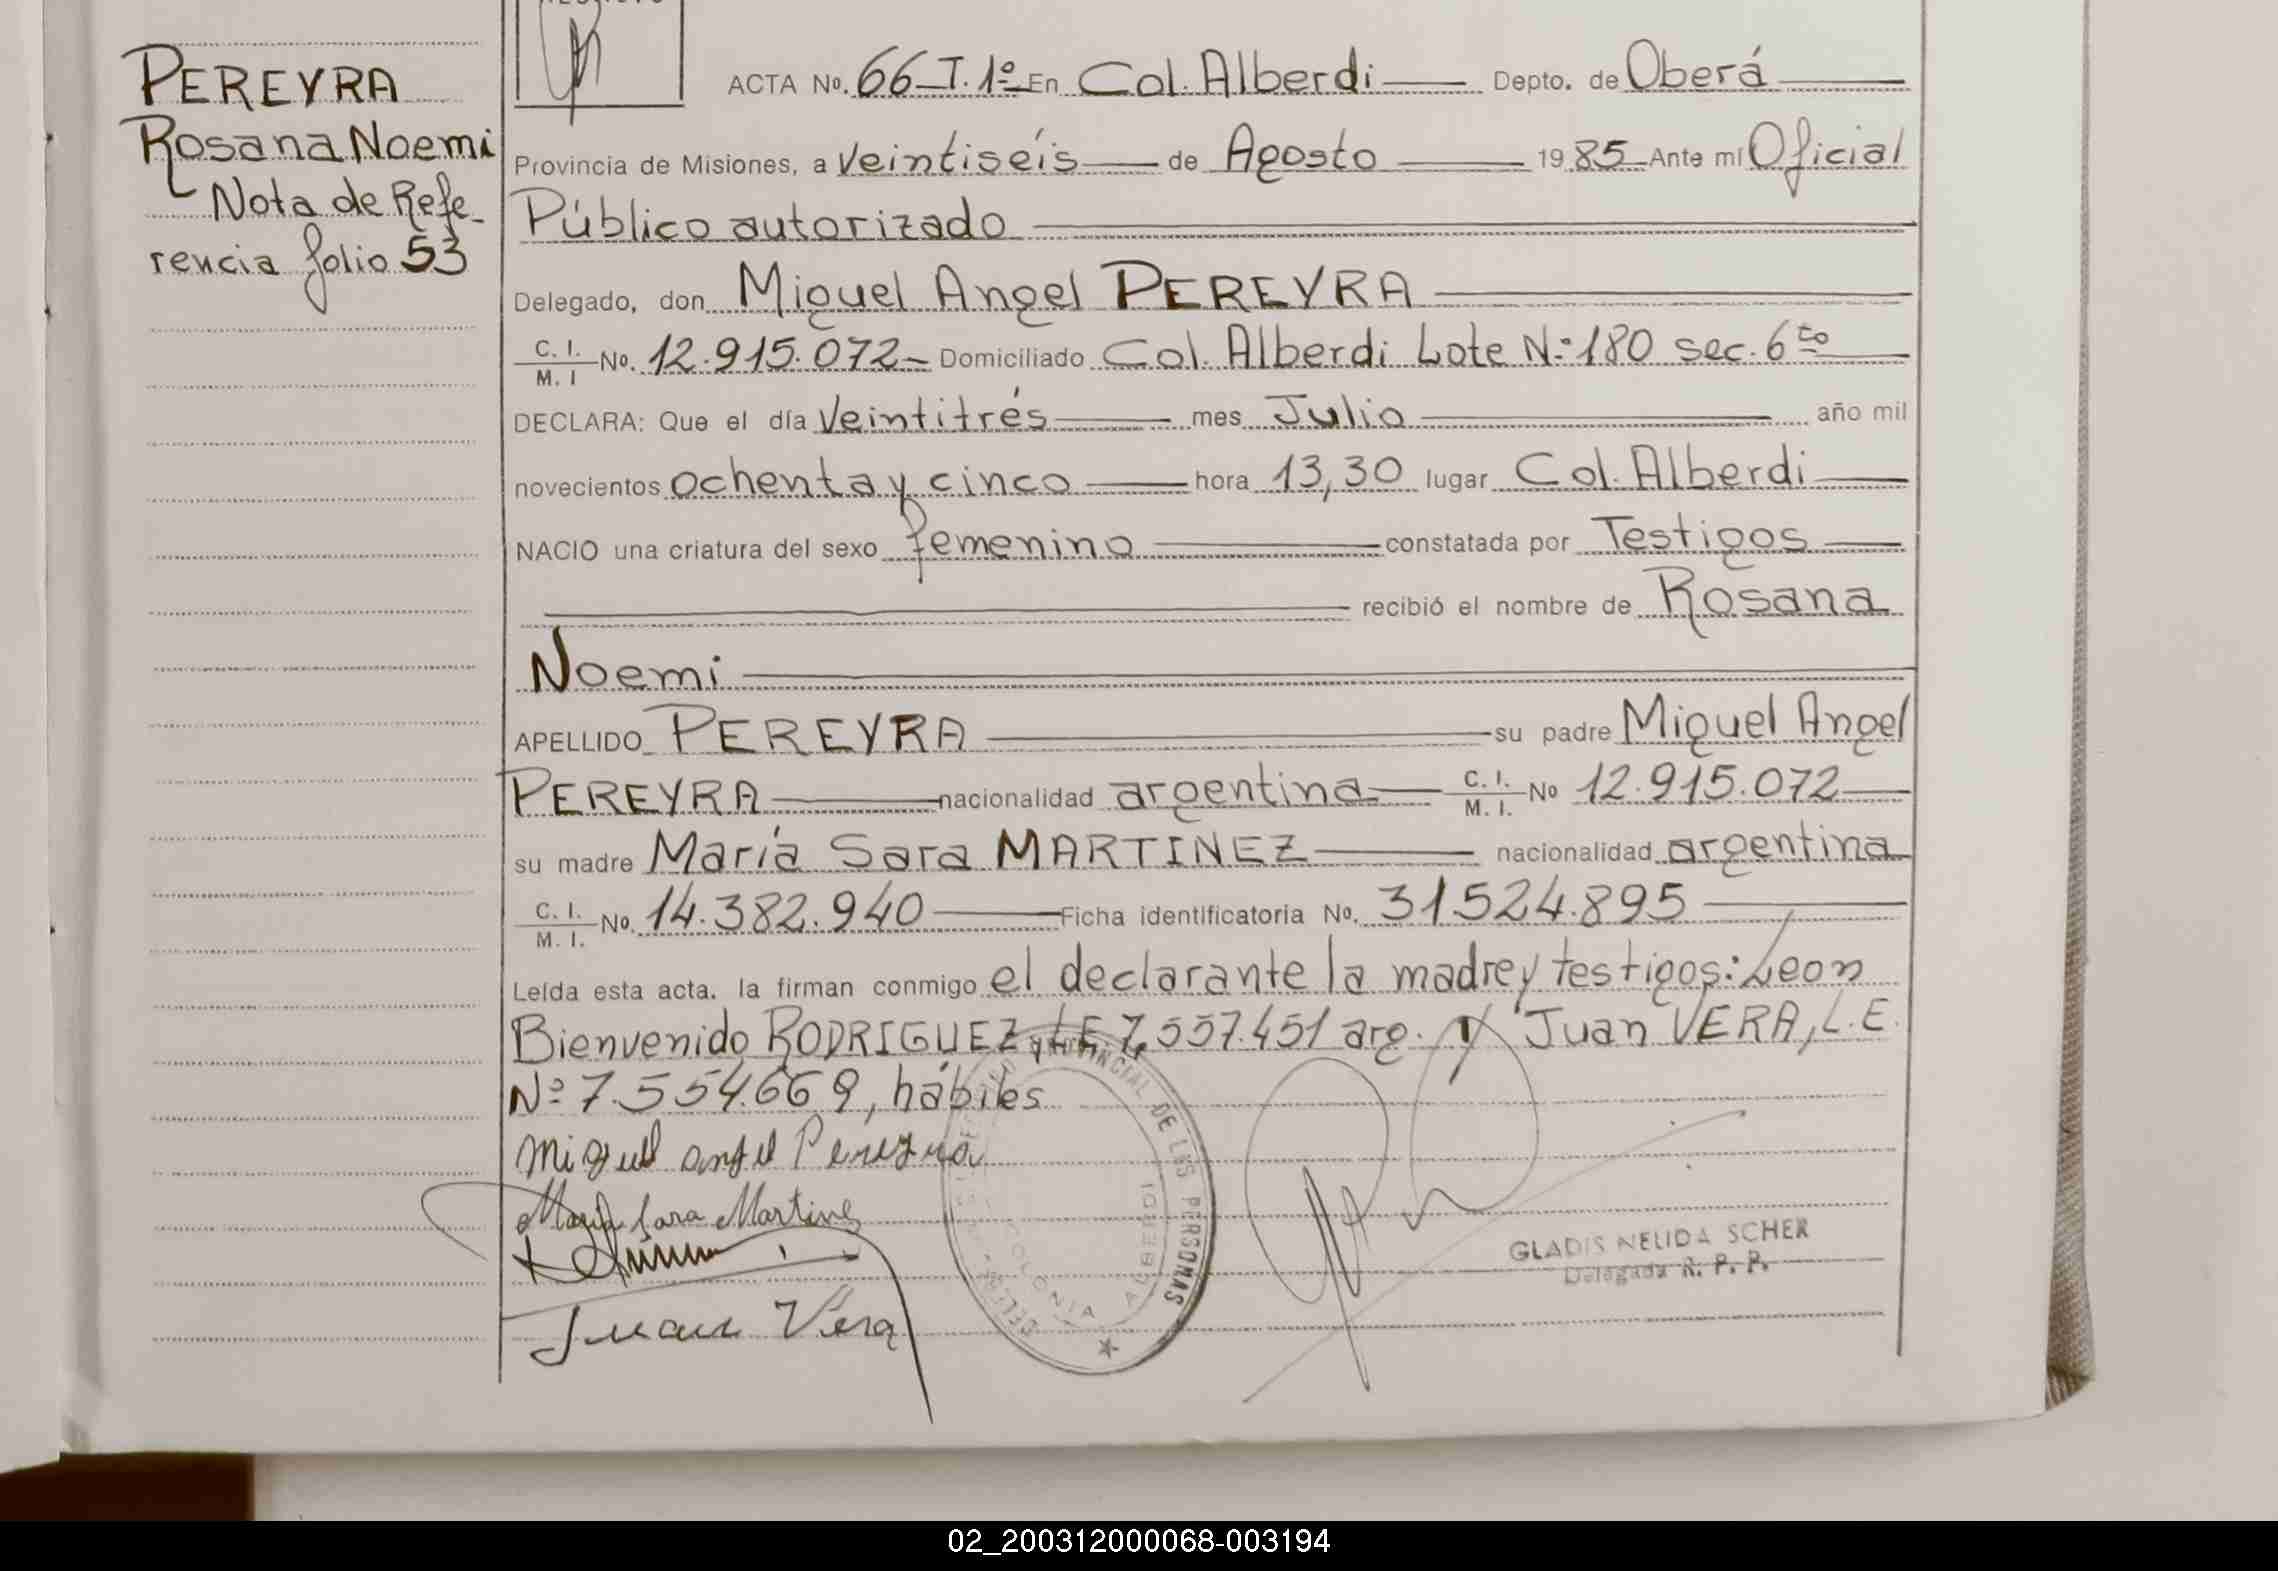 PEREYRA
Rosana Noemi
Nota de Refe-
rencia folio 53
ACTA No. 66 T. 1º En Col. Alberdi Depto. de Oberá
Provincia de Misiones, a veintiséis de Agosto 1985 Ante mí Oficial
Público autorizado
Delegado, don Miguel Angel PEREYRA
C. I. M. I No. 12.915.072 Domiciliado Col. Alberdi Lote Nº 180 sec. 6to
DECLARA: Que el día veintitrés mes Julio año mil
novecientos ochenta y cinco hora 13,30 lugar Col. Alberdi
NACIO una criatura del sexo femenino constatada por Testigos
recibió el nombre de Rosana
Noemi
APELLIDO PEREYRA su padre Miguel Angel
PEREYRA nacionalidad argentina C. I. M. I. No 12.915.072
su madre María Sara MARTINEZ nacionalidad argentina
C. I. M. I. No. 14.382.940 Ficha identificatoria No. 31524.895
Leída esta acta. la firman conmigo el declarante la madre y testigos: Leon
Bienvenido RODRIGUEZ, L.E. 7.557.451 arg. y Juan VERA, L.E.
Nº 7.554.669, hábiles
Miguel angel Pereyra
María Sara Martine
Juan Vera
PROVINCIAL DE LAS PERSONAS
COLONIA ALBERDI
GLADIS NELIDA SCHER
Delegada R. P. P.
02_200312000068-003194